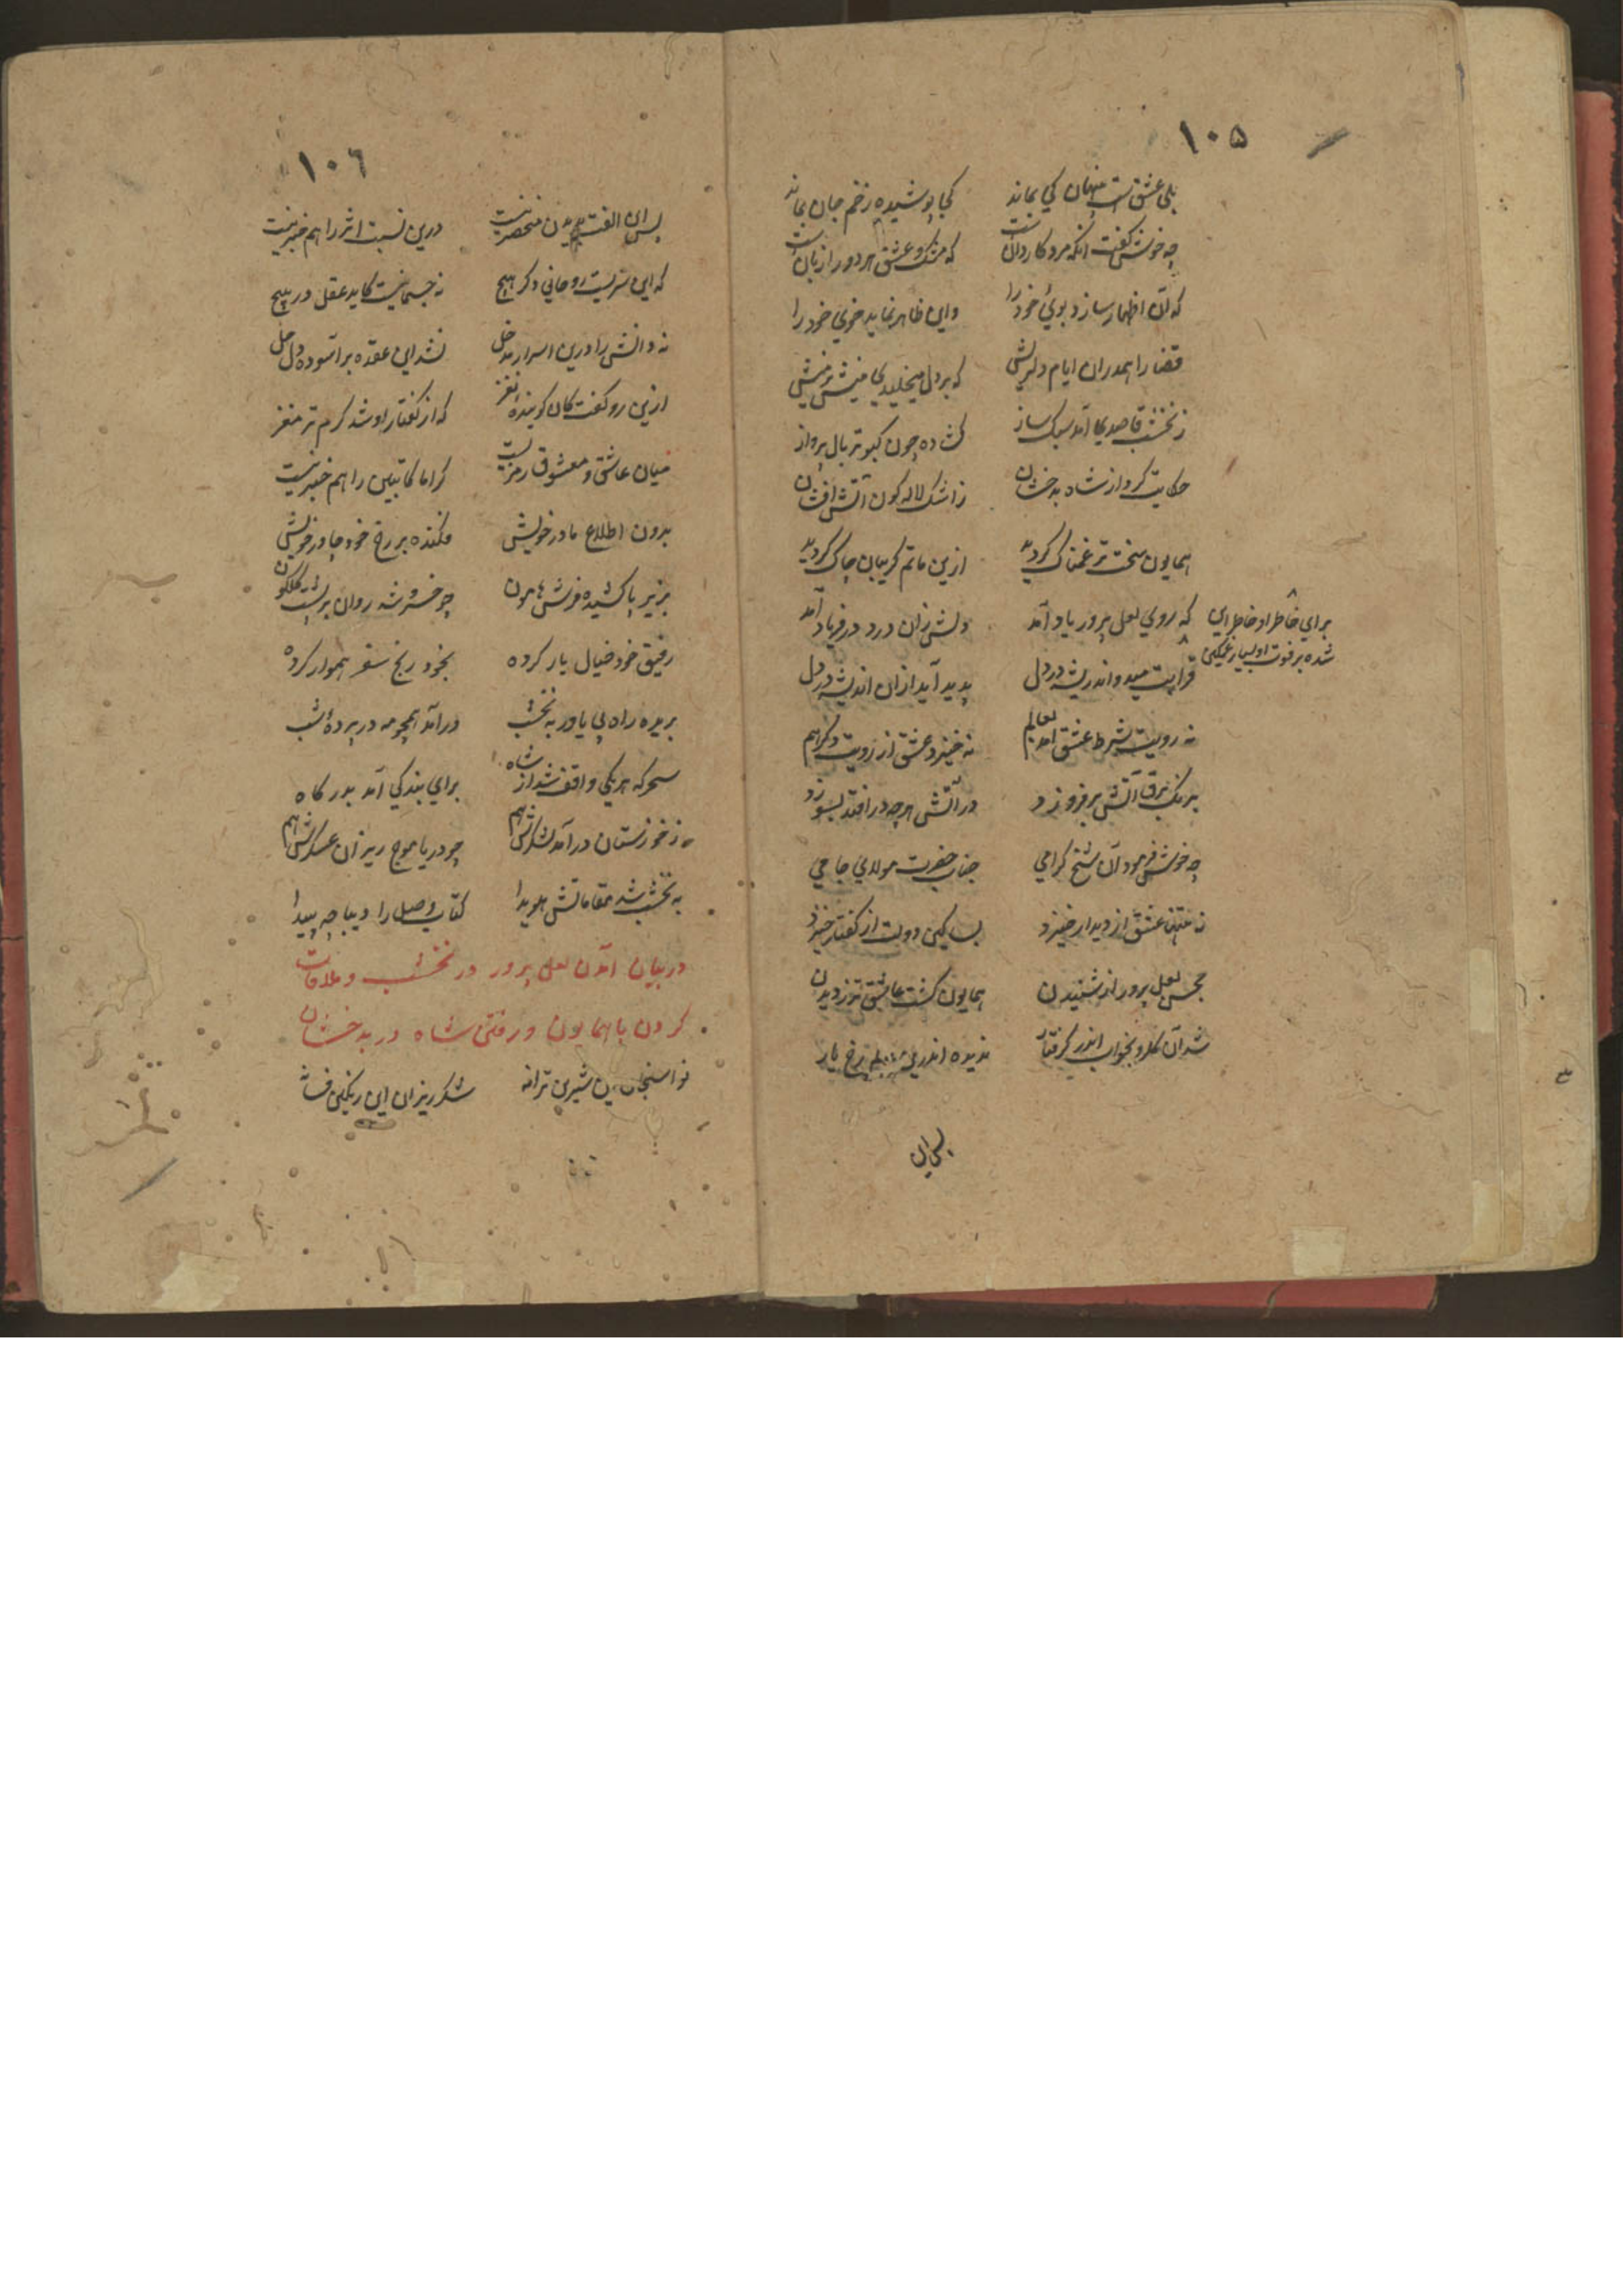 ۱۰۵
بلی عشق است پنهان کی بماند کجا پوشیده زخم جان بماند
چه خوش گفت آنکه مرد کاردانست که مشک و عشق هر دو رازبانست
که آن اظهار سازد بوئ خود را واین ظاهر نماید خوي خود را
قضا را همدران ایام دلریش که بر دل میخلیدي نیش بر نیش
ز نخشب قاصدي آمد سبک ساز کشاده چون کبوتر بال پرواز
حکایت کرد از شاه بدخشان ز اشک لاله کون آتش افشان
همایون سخت تر غمناک کردید ازین ماتم کریبان چاک کردید
که روي لعل پرور یاد آمد دلش زان درد در فریاد آمد
براي خاطر او خاطر این
شده بر فوت او بسیار غمکین
قرابت میدواند ریشه در دل پدید آید ازان اندیشه در دل
نه رویت شرط عشق آمد بعالم نه خیزد عشق از رویت دکر هم
برنک برق آتش بر فروزد در آتش هر چه در افتد بسوزد
چه خوش فرمود آن شیخ کرامي جناب حضرت مولاي جامي
نه تنها عشق از دیدار خیزد بسا کین دولت از کفتار خیزد
همایون کشت عاشق تر ز دیدن
شد آن کلرو بخواب اندر کرفتار ندیده اندرین رخ یار
بس این
۱۰۶
بس این الفت بدیدن منحصر نیست درین نسبت اثر را هم خبر نیست
که این سریست روحاني دکر هیچ نه جسمانیست کاید عقل در پیچ
نه دانش را درین اسرار مدخل نشد این عقده بر آسوده دل حل
ازین رو کفت کان کوینده نغز که از کفتار او شد کرم تر مغز
میان عاشق و معشوق رمزیست کراما کاتبین را هم خبر نیست
بدون اطلاع مادر خویش فکنده بر رخ خود چادر خویش
بزیر پا کشیده فرش هامون چو خسرو شه روان بر پشت کلکون
رفیق خود خیال یار کرده بخود رنج سفر هموار کرده
بریده راه بي یاور به نخشب در آمد همچو مه در پردهٔ شب
سحر که هر یکي واقف شد از شاه براي بندکي آمد بدرکاه
ز خوزستان در آمد لشکرش هم چو دریا موج ریزان عسکرش هم
به نخشب شد مقاماتش هویدا کتاب وصل را دیباچه پیدا
در بیان آمدن لعل پرور در نخشب و ملاقات
کردن با همایون و رفتن شاه در بدخشان
نوا سنجان این شیرین ترانه شکر ریزان این رنکین فسانه